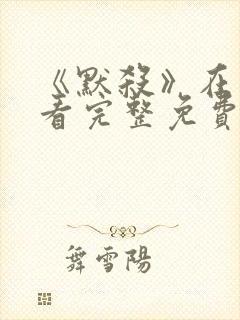 《默殺》在
看完整免費
舞雪陽